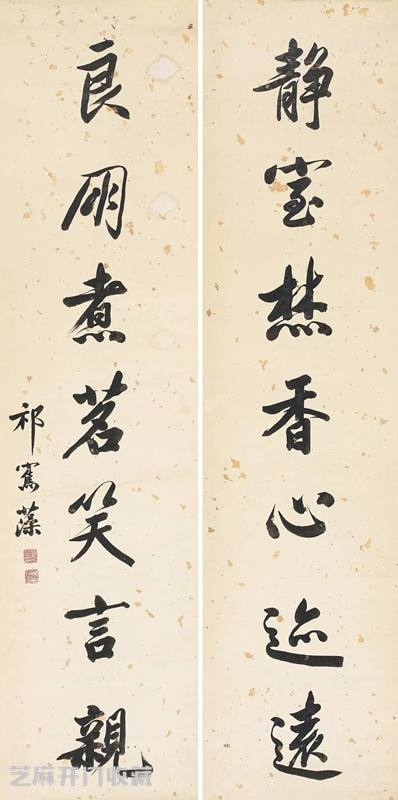 靜室焚香心迹遠
良朋煮茗笑言親
祁寯藻
芝麻开门收藏